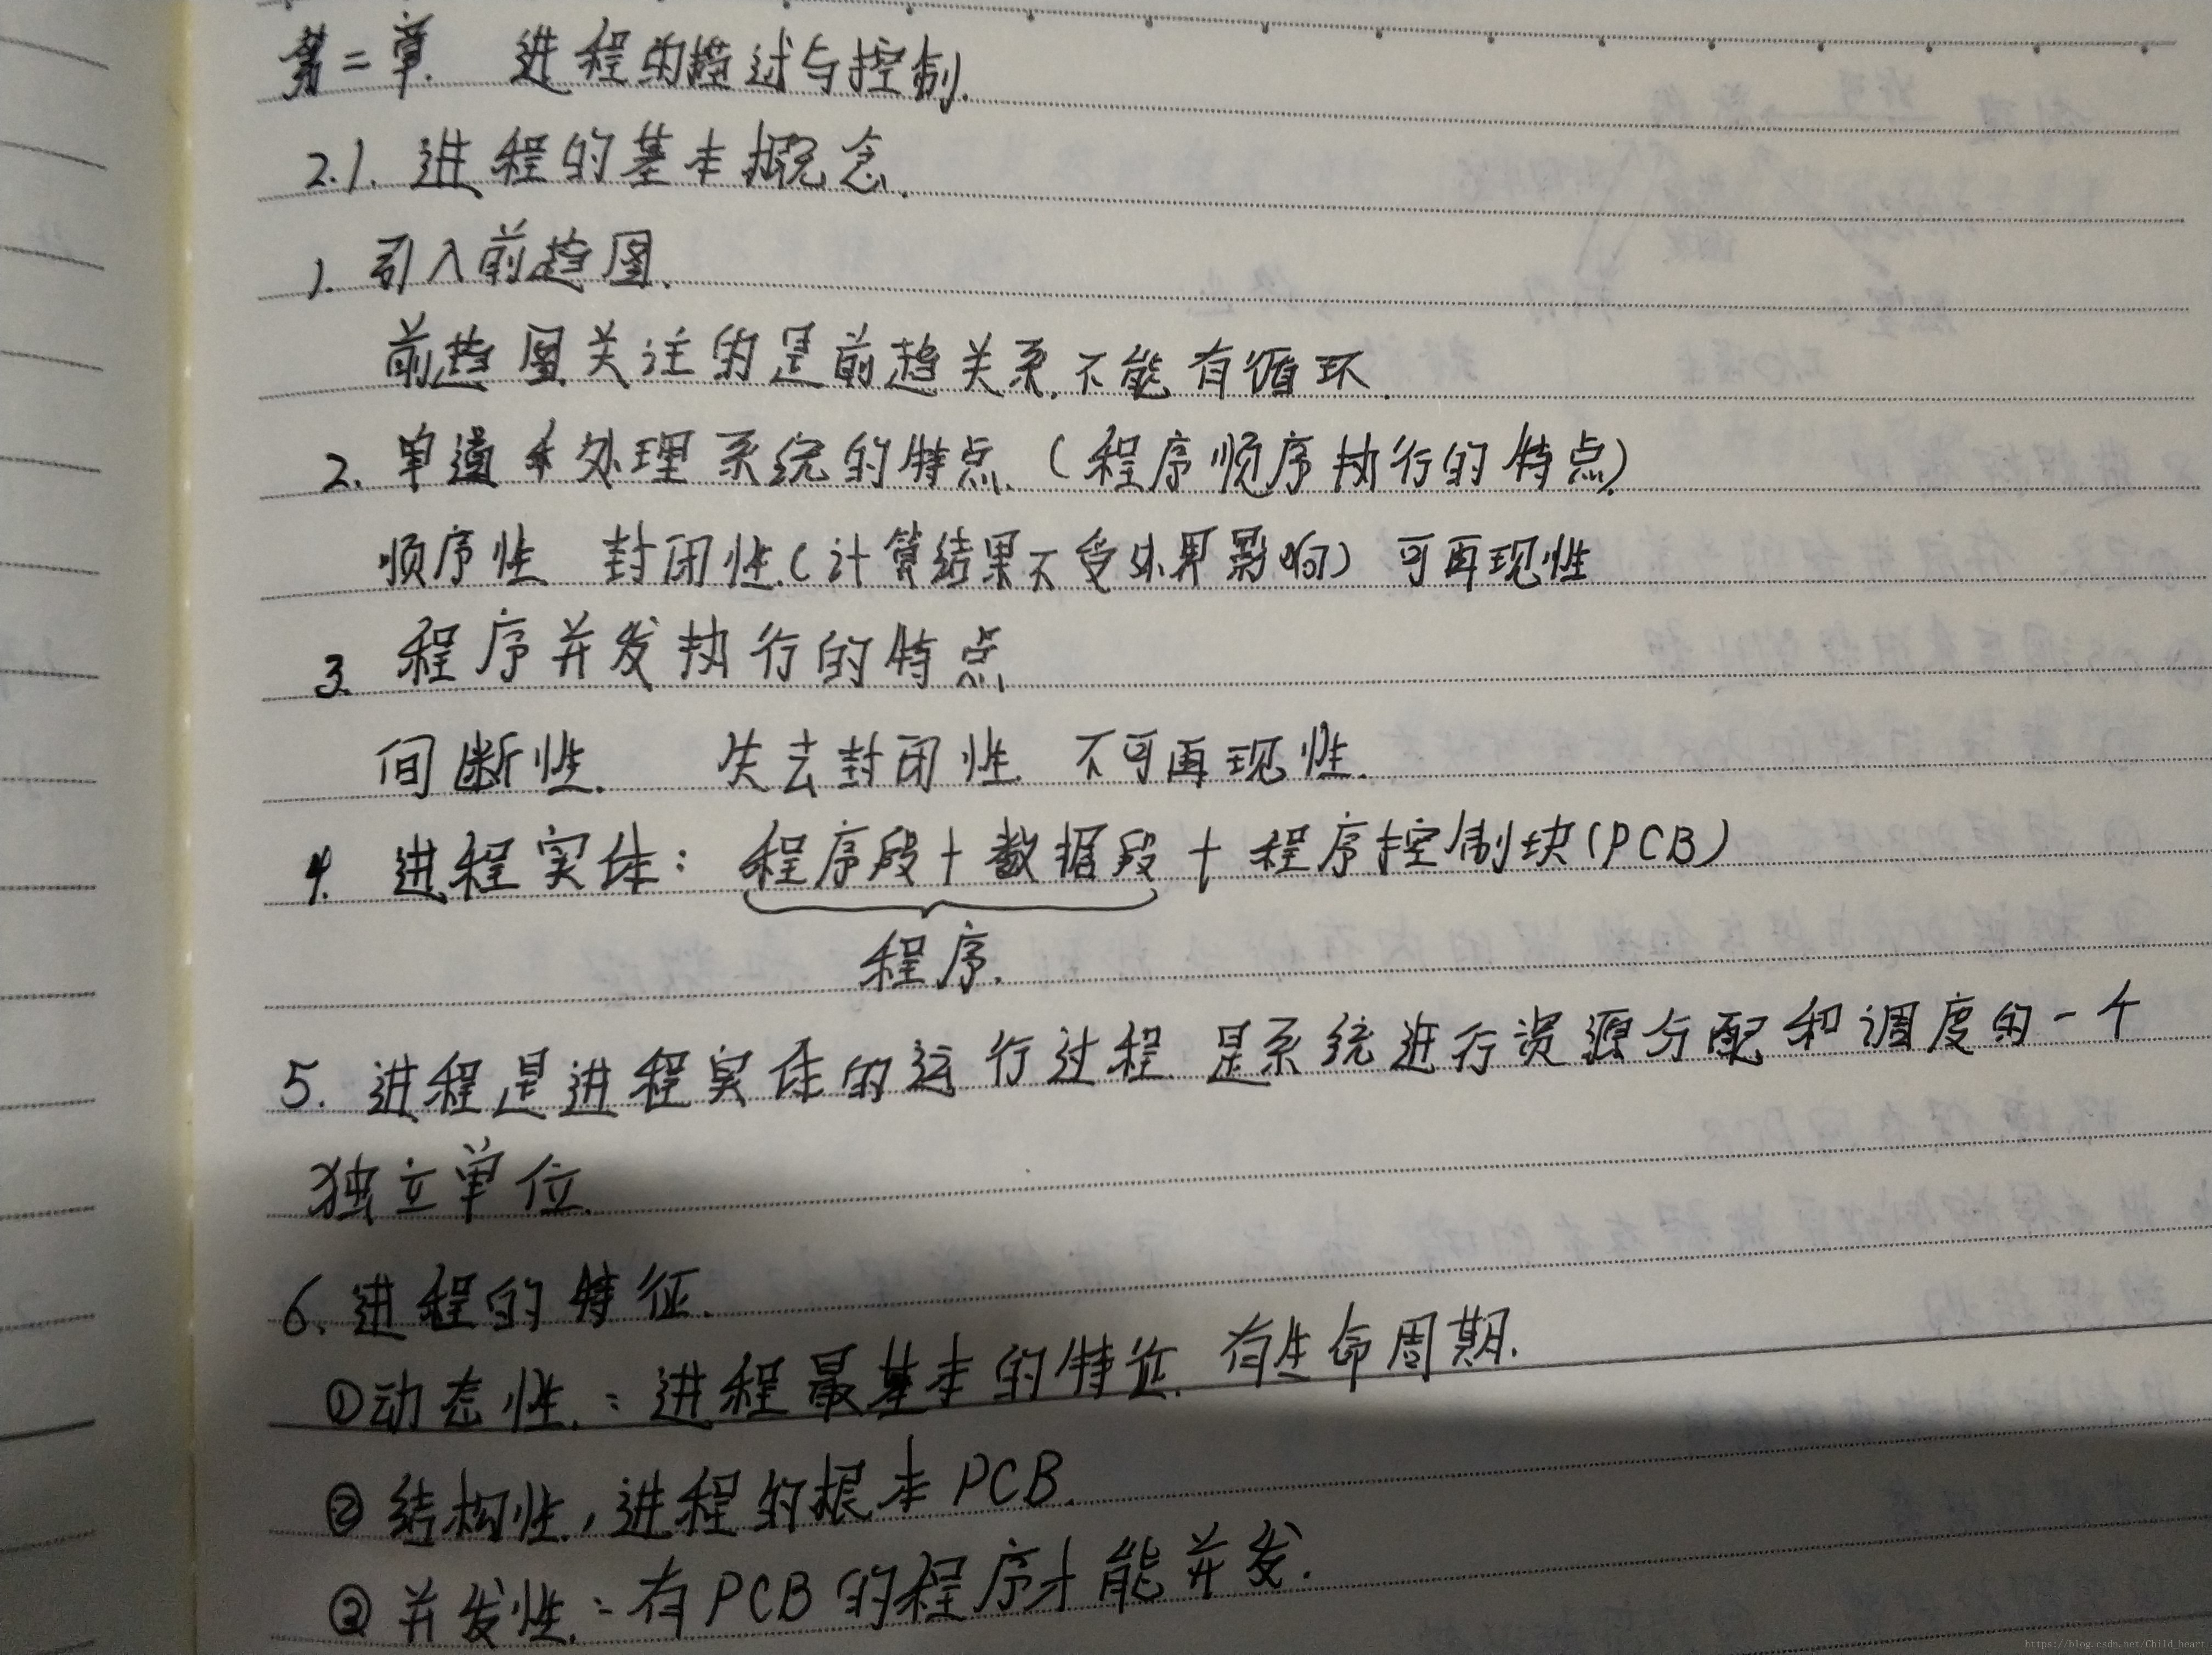 第二章. 进程的描述与控制.
2.1. 进程的基本概念.
1. 引入前趋图.
前趋图关注的是前趋关系.不能有循环.
2. 单道处理系统的特点.(程序顺序执行的特点)
顺序性 封闭性.(计算结果不受外界影响) 可再现性
3. 程序并发执行的特点
间断性. 失去封闭性. 不可再现性.
4. 进程实体: 程序段+数据段+程序控制块(PCB)
程序.
5. 进程是进程实体的运行过程.是系统进行资源分配和调度的一个
独立单位.
6. 进程的特征.
①动态性.:进程最基本的特征.有生命周期.
②结构性.,进程的根本PCB.
③并发性.:有PCB的程序才能并发.
https://blog.csdn.net/Child_heart